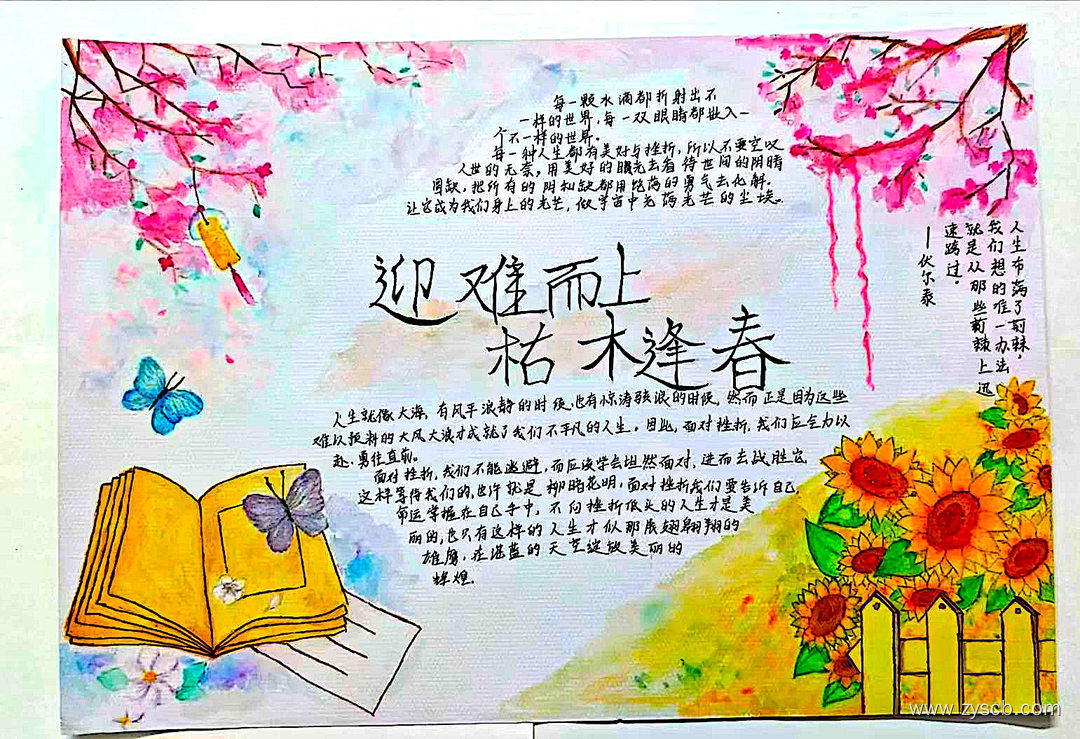 每一颗水滴都折射出不
一样的世界,每一双眼睛都映入一
个不一样的世界。
每一种人生都有美好与挫折,所以不要空叹
人世的无奈,用美好的眼光去看待世间的阴晴
圆缺,把所有的阴和缺都用饱满的勇气去化解。
让它成为我们身上的光芒,做宇宙中充满光芒的尘埃。
人生布满了荆棘,
我们想的唯一办法
就是从那些荆棘上迅
速跨过。
——伏尔泰
迎难而上
枯木逢春
人生就像大海,有风平浪静的时候,也有惊涛骇浪的时候,然而正是因为这些
难以预料的大风大浪才成就了我们不平凡的人生。因此,面对挫折,我们应全力以
赴,勇往直前。
面对挫折,我们不能逃避,而应该学会坦然面对,进而去战胜它
这样等待我们的,也许就是柳暗花明,面对挫折我们要告诉自己,
命运掌握在自己手中,不向挫折低头的人生才是美
丽的,也只有这样的人生才似那展翅翱翔的
雄鹰,在湛蓝的天空绽放美丽的
辉煌。
www.zyscb.com